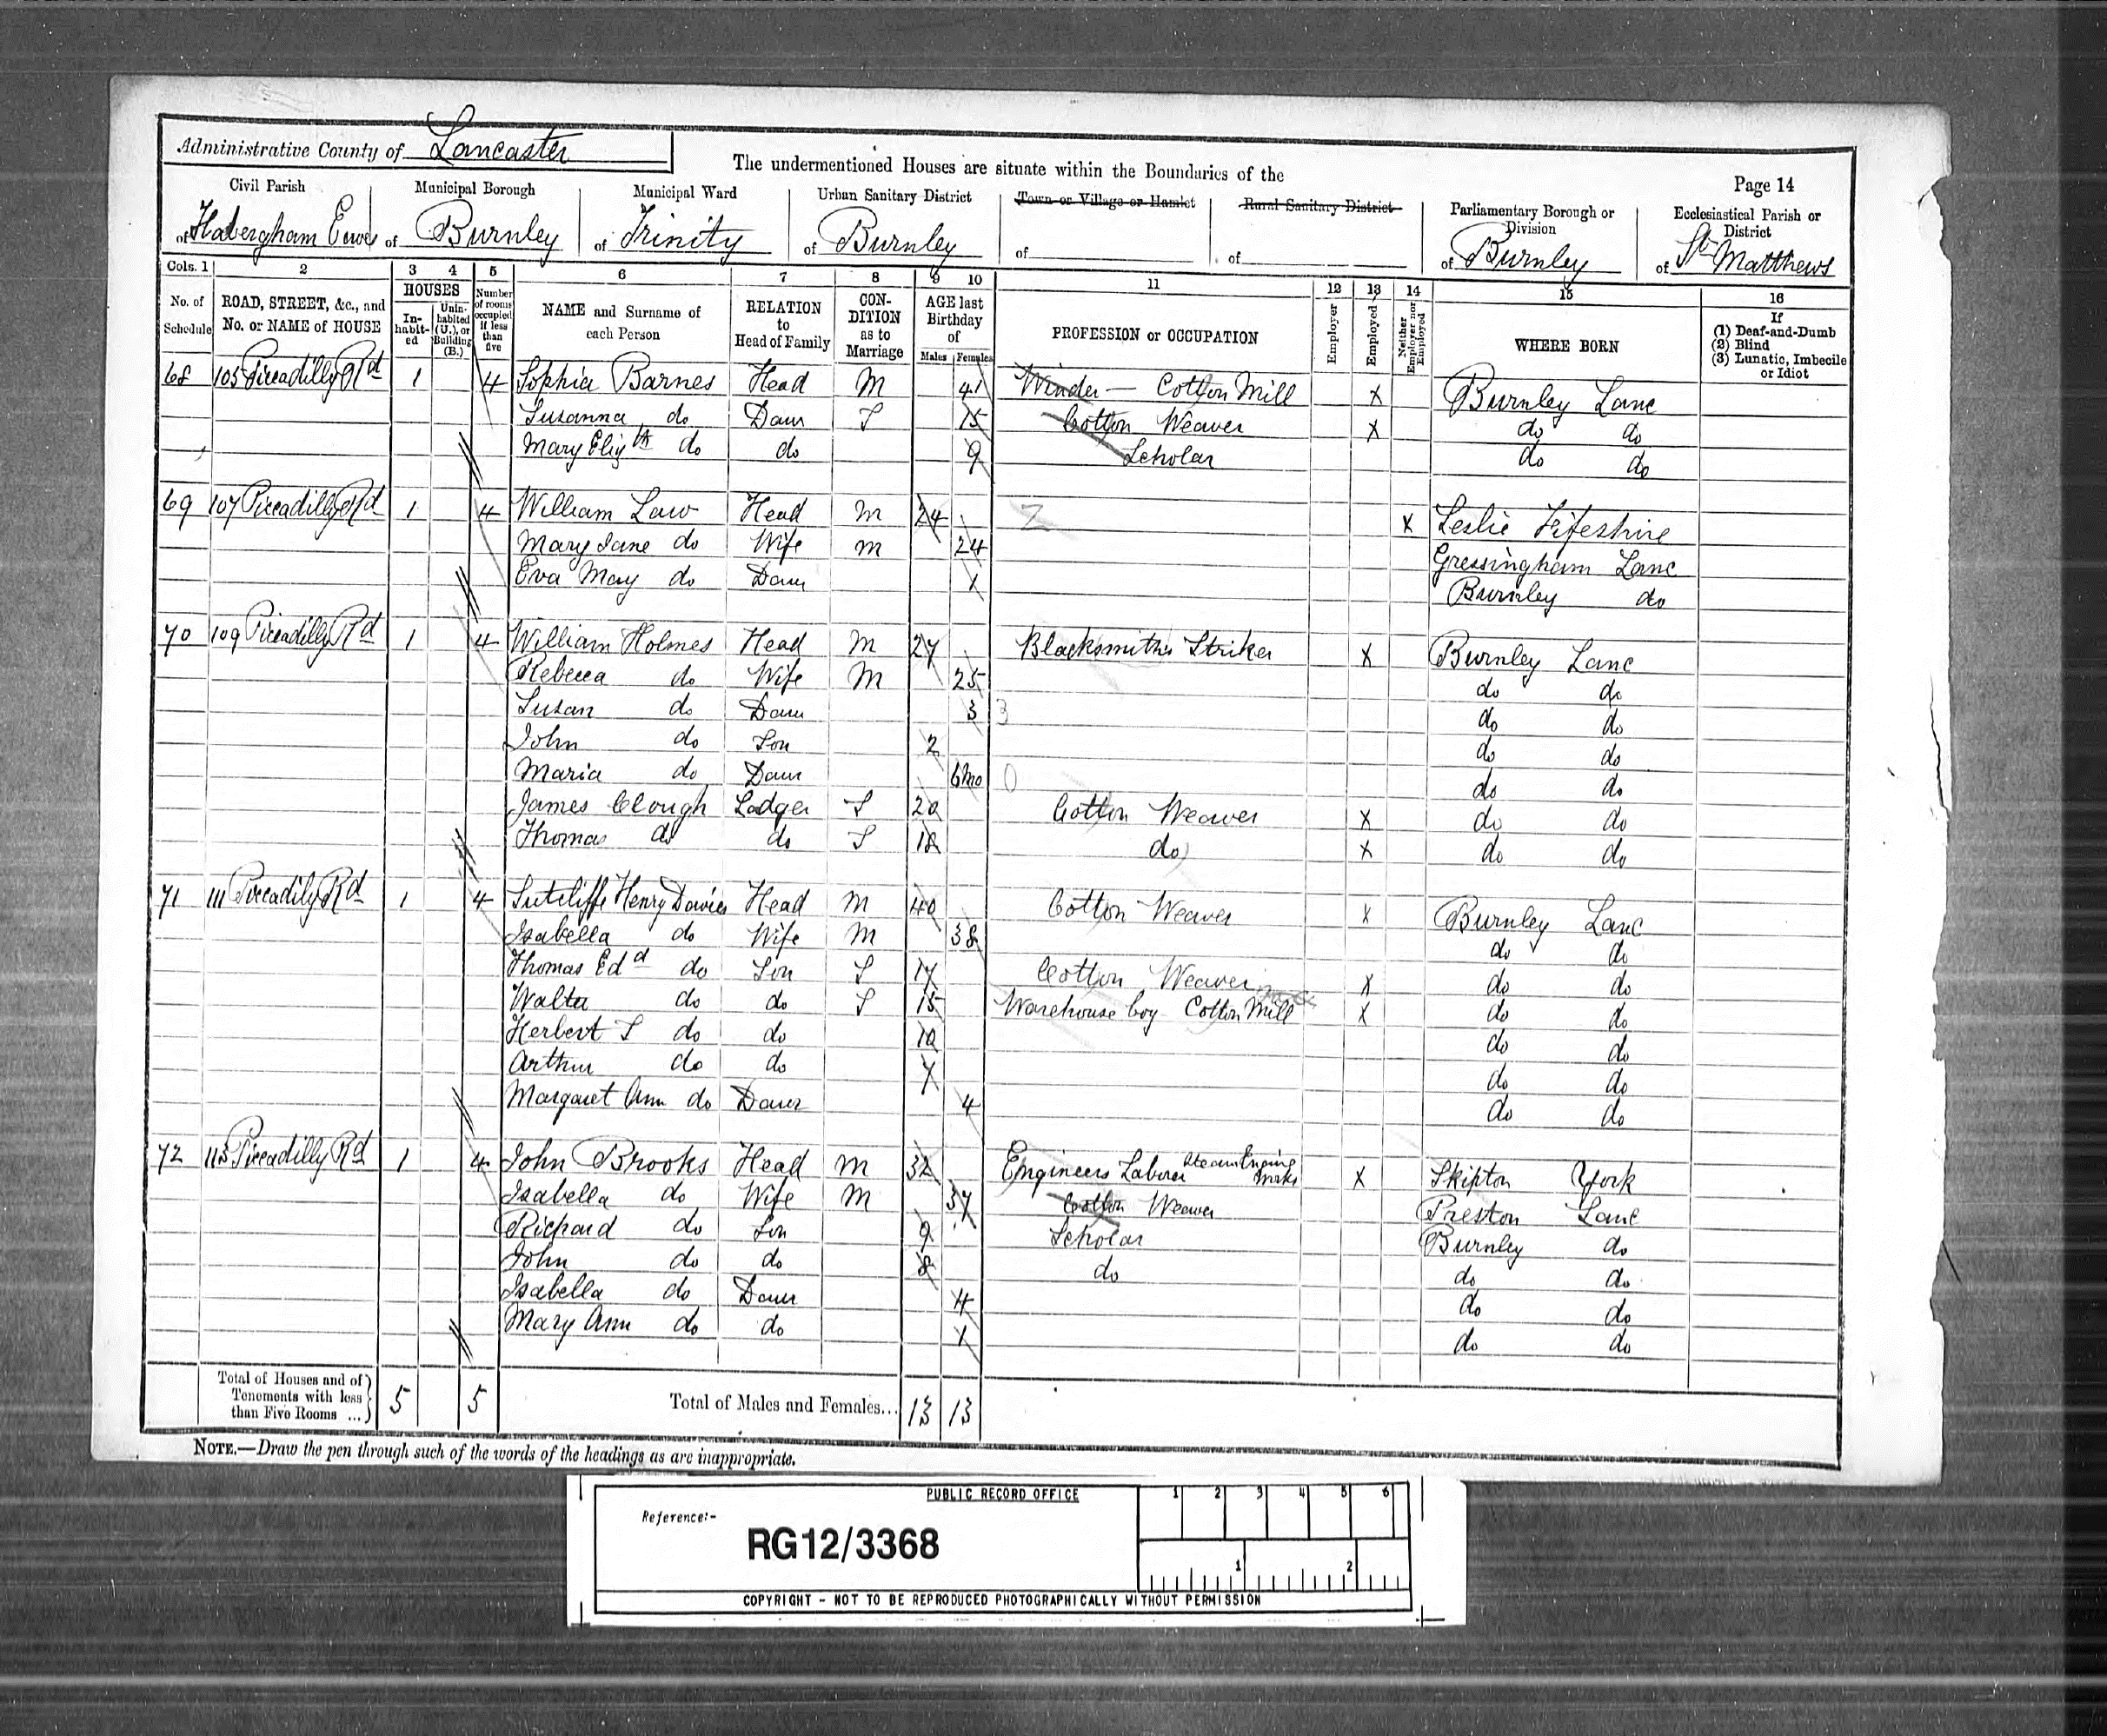 Administrative County of Lancaster
The undermentioned Houses are situate within the Boundaries of the
Page 14
Civil Parish of Habergham Eaves
Municipal Borough of Burnley
Municipal Ward of Trinity
Urban Sanitary District of Burnley
Town or Village or Hamlet of
Rural Sanitary District of
Parliamentary Borough or Division of Burnley
Ecclesiastical Parish or District of St Matthews
Cols. 1 2 3 4 5 6 7 8 9 10 11 12 13 14 15 16
No. of Schedule
ROAD, STREET, &c., and No. or NAME of HOUSE
HOUSES
Inhabited
Uninhabited (U.), or Building (B.)
Number of rooms occupied if less than five
NAME and Surname of each Person
RELATION to Head of Family
CONDITION as to Marriage
AGE last Birthday of
Males Females
PROFESSION or OCCUPATION
Employer
Employed
Neither Employer nor Employed
WHERE BORN
If
(1) Deaf-and-Dumb
(2) Blind
(3) Lunatic, Imbecile or Idiot
68 105 Piccadilly Rd 1 4 Sophia Barnes Head M 41 Winder — Cotton Mill X Burnley Lanc
Susanna do Daur S 15 Cotton Weaver X do do
Mary Elizth do do 9 Scholar do do
69 107 Piccadilly Rd 1 4 William Law Head M 24 X Leslie Fifeshire
Mary Jane do Wife M 24 Gressingham Lanc
Eva May do Daur 1 Burnley do
70 109 Piccadilly Rd 1 4 William Holmes Head M 27 Blacksmiths Striker X Burnley Lanc
Rebecca do Wife M 25 do do
Susan do Daur 3 3 do do
John do Son 2 do do
Maria do Daur 6mo 0 do do
James Clough Lodger S 20 Cotton Weaver X do do
Thomas do do S 18 do X do do
71 111 Piccadily Rd 1 4 Sutcliffe Henry Davies Head M 40 Cotton Weaver X Burnley Lanc
Isabella do Wife M 38 do do
Thomas Edd do Son S 17 Cotton Weaver X do do
Walter do do S 15 Warehouse boy Cotton Mill X do do
Herbert S do do 10 do do
Arthur do do 7 do do
Margaret Ann do Daur 4 do do
72 113 Piccadilly Rd 1 4 John Brooks Head M 32 Engineers Laborer Steam Engine Works X Skipton York
Isabella do Wife M 37 Cotton Weaver Preston Lanc
Richard do Son 9 Scholar Burnley do
John do do 8 do do do
Isabella do Daur 4 do do
Mary Ann do do 1 do do
Total of Houses and of Tenements with less than Five Rooms ... 5 5 Total of Males and Females... 13 13
NOTE.—Draw the pen through such of the words of the headings as are inappropriate.
PUBLIC RECORD OFFICE
1 2 3 4 5 6
Reference:-
RG12/3368
1 2
COPYRIGHT - NOT TO BE REPRODUCED PHOTOGRAPHICALLY WITHOUT PERMISSION